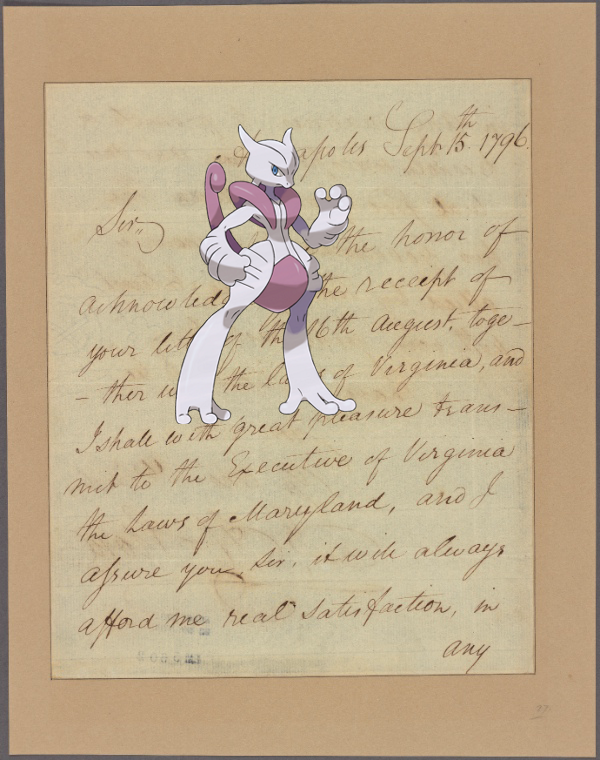 Sept. 15th 1796.
Sir,,
the honor of
the receipt of
your of the 16th August, toge-
-ther the laws of Virginia, and
I shall with great pleasure trans-
mit to the Executive of Virginia
the Laws of Maryland, and I
assure you, Sir, it will always
afford me real satisfaction, in
any